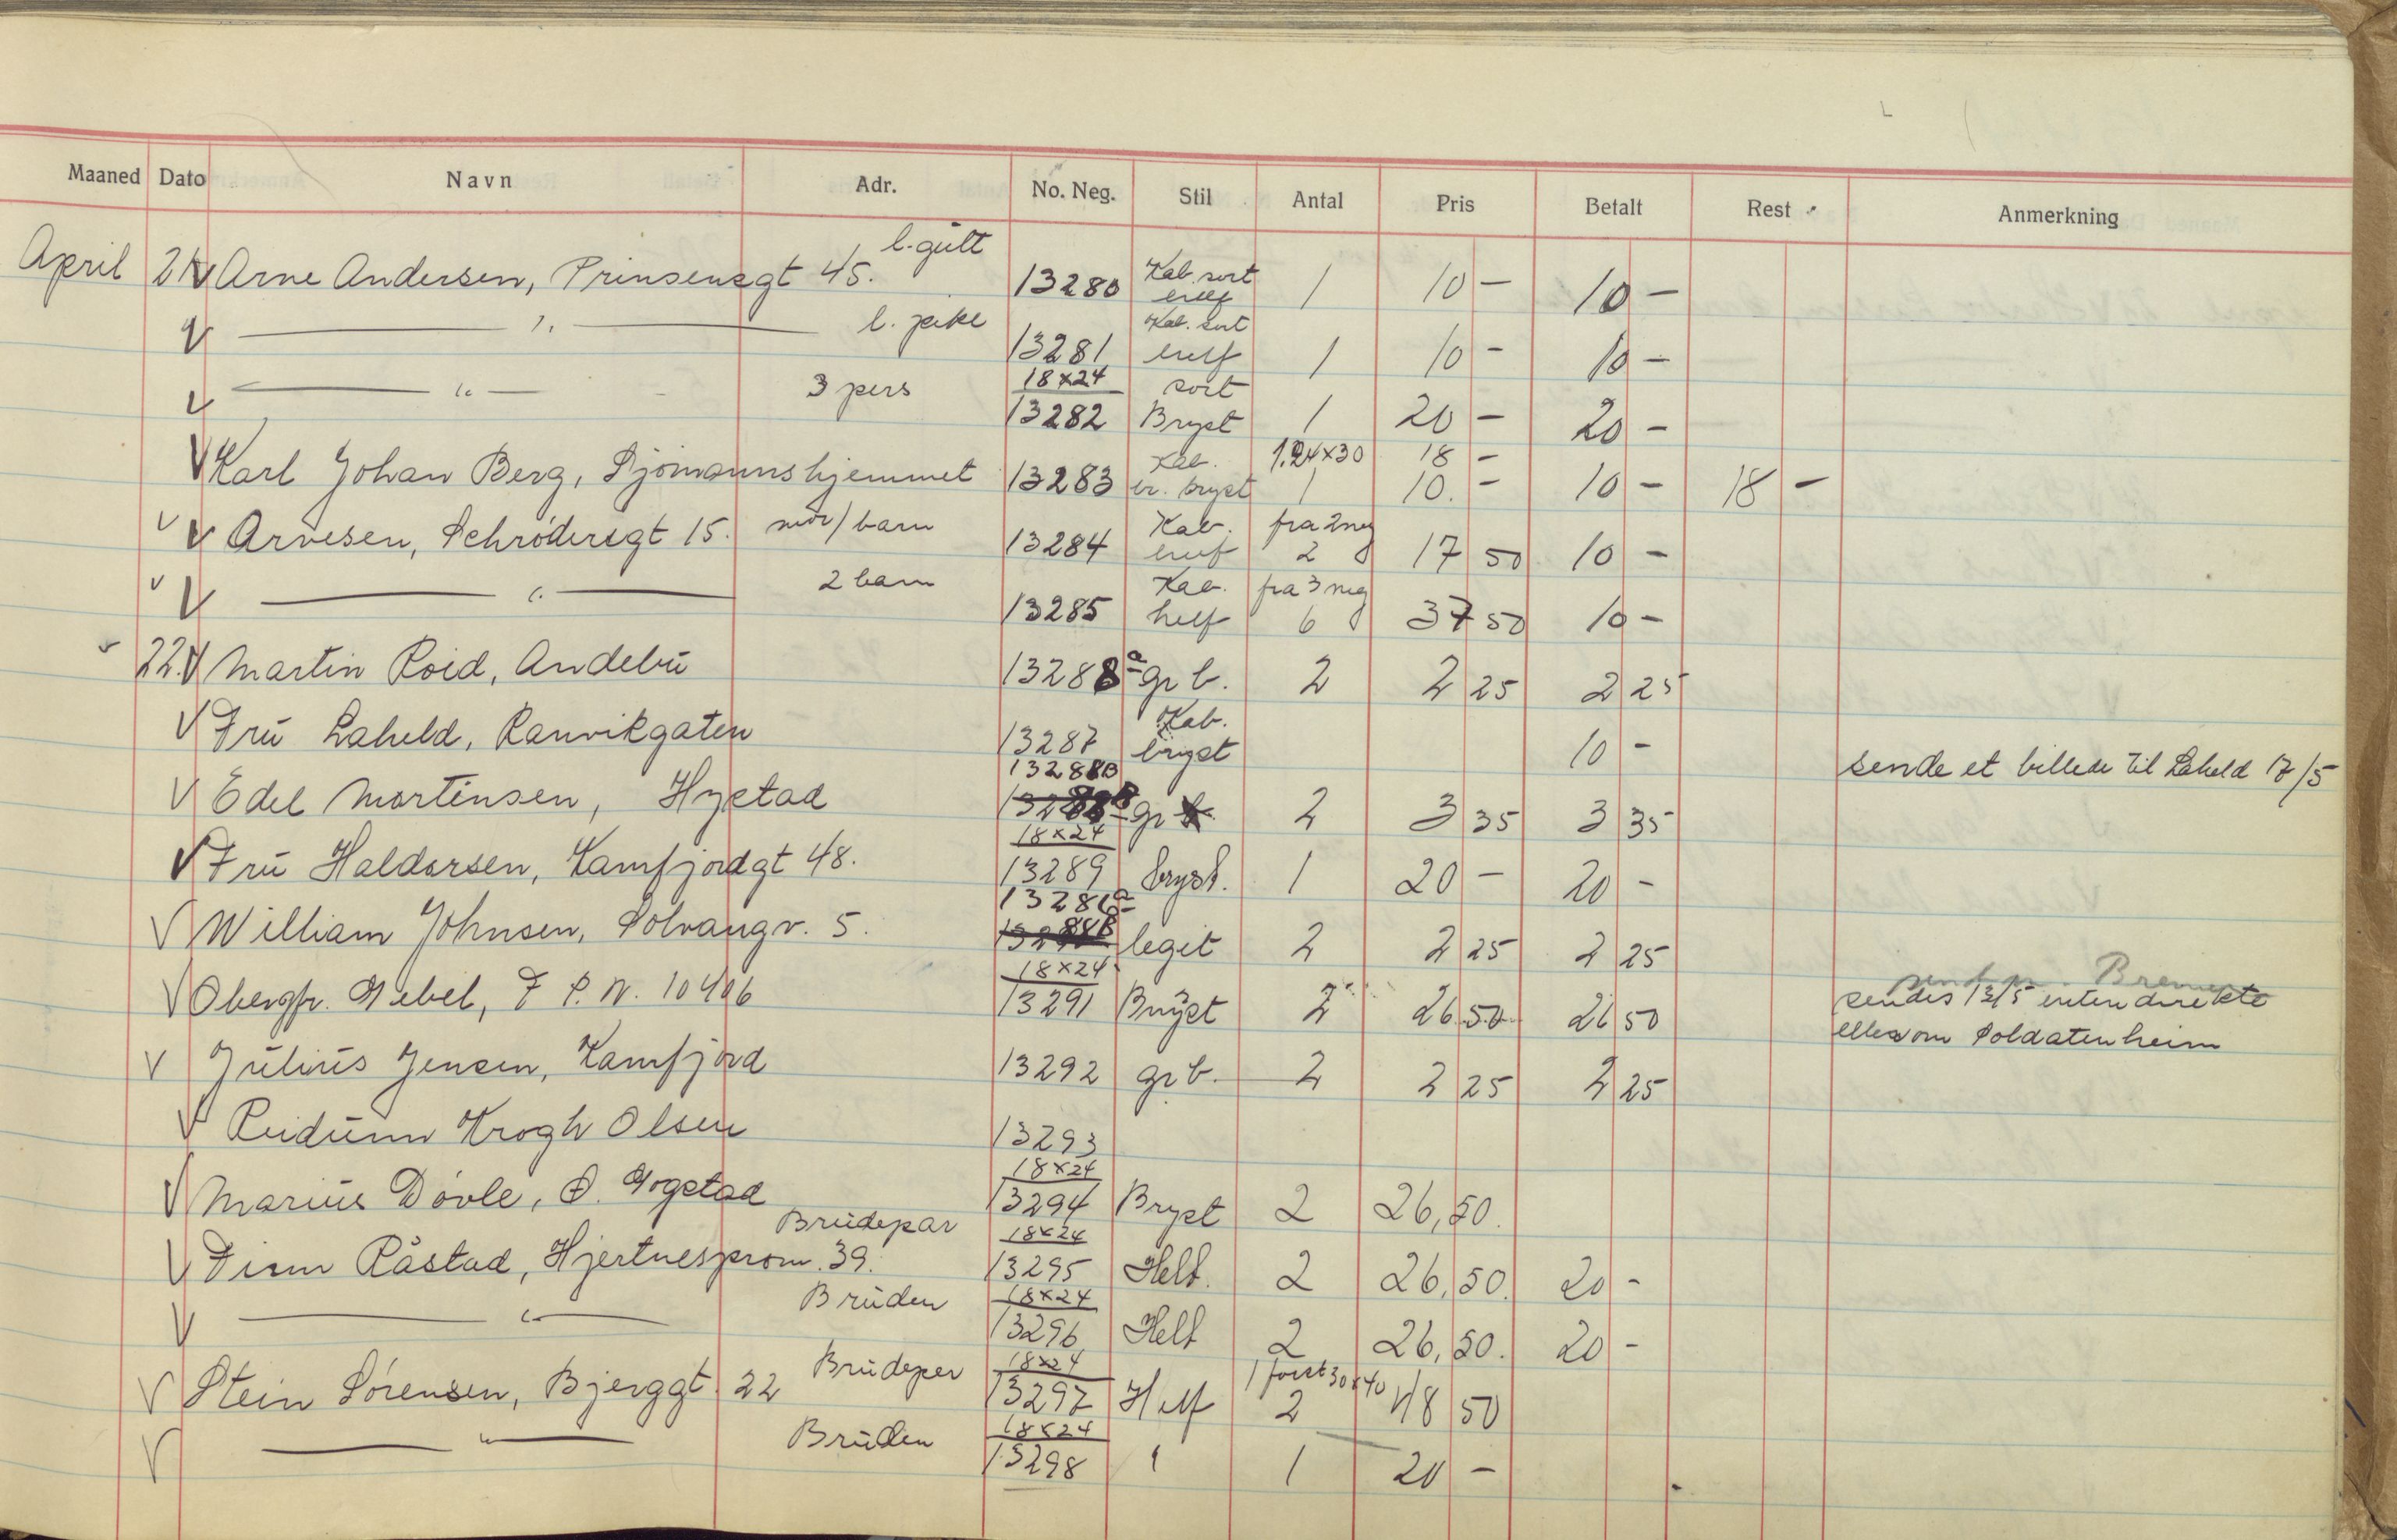 Maaned Dato Navn Adr. No. Neg. Stil Antal Pris Betalt Rest Anmerkning
l. gutt
April 21 V Arne Andersen, Prinsensgt 45. 13280 Kab. sort 1 10 - 10 -
l. pike Kab. sort
V — " — 13281 1 10 - 10 -
18x24 sort
V — " — 3 pers 13282 Bryst 1 20 - 20 -
Kab. 1. 24x30 18 -
V Karl Johan Berg, Sjömannshjemmet 13283 br. bryst 1 10. - 10 - 18 -
mor/barn Kab. fra 2 neg
V V Arvesen, Schrödersgt 15. 13284 2 17 50 10 -
2 barn Kab. fra 3 neg
V V — " — 13285 helf 6 37 50 10 -
22. V Martin Roid, Andebu 13288a gr b. 2 2 25 2 25
Kab.
V Fru Laheld, Ranvikgaten 13287 bryst 10 - sende et billede til Laheld 17/5
13288B
V Edel Mortensen, Hystad gr 2 3 35 3 35
18x24
V Fru Haldorsen, Kamfjordgt 48. 13289 bryst. 1 20 - 20 -
V William Johnsen, Solvangv. 5. legit 2 2 25 2 25
18x24 Bremen
V Obergfr. Nebel, F P. N. 10406 13291 Bryst 2 26 50 26 50 sendes 13/5 enten direkte
eller om Soldatenheim
V Julius Jensen, Kamfjord 13292 gr b. 2 2 25 2 25
V Reidunn Krogh Olsen 13293
18x24
V Marius Dövle, Ö. Gogstad 13294 Bryst 2 26,50.
Brudepar 18x24
V Finn Råstad, Hjertnesprom. 39. 13295 Helf. 2 26,50. 20 -
Bruden 18x24
V — " — 13296 Helf 2 26,50. 20 -
Brudepar 18x24 1 forst 30x40
V Stein Sörensen, Bjerggt. 22 13297 Helf 2 48 50
Bruden 18x24
V — " — 13298 " 1 20 -